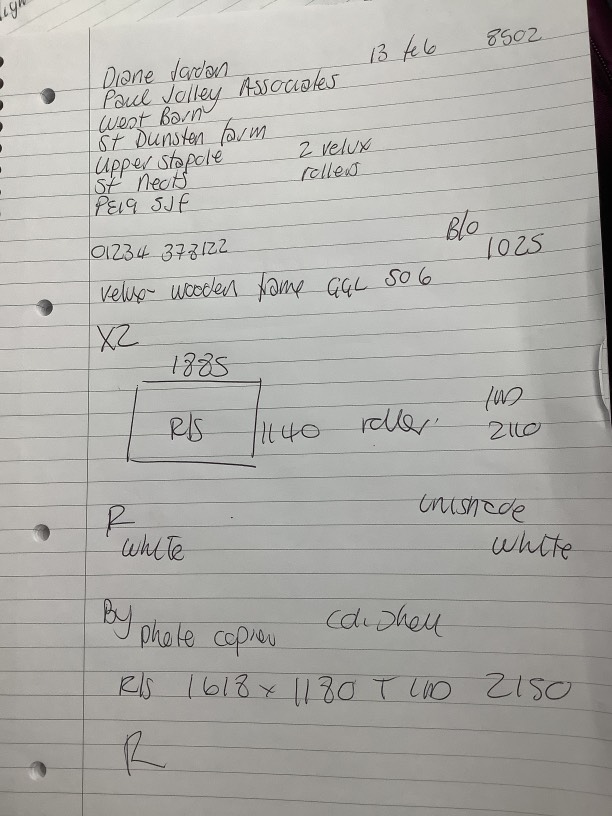 Diane Jordan 13 Feb 8502
Paul Jolley Associates
West Barn
St Dunsten farm
Upper Stapole
St Neots
PE19 5JF
2 velux
rollers
01234 378122
B/O
1025
Velux- wooden frame GGL S06
X2
1885
R/S 1140 roller.
2110
R
white
unishade
white
By
photo copier
R/S 1618 x 1180 T 2150
R